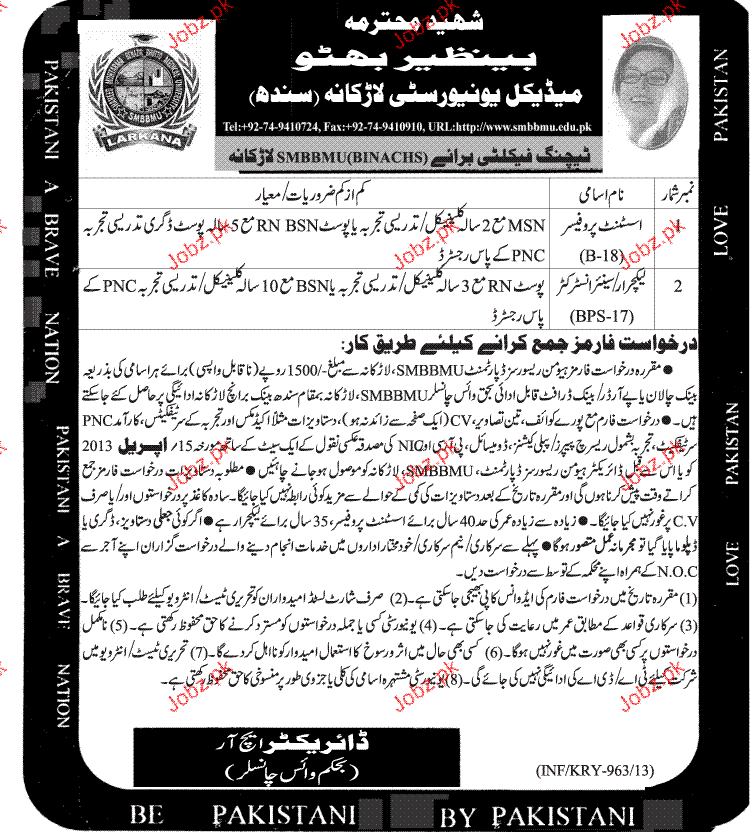 شهيد محترمه
بينظير بهٹو
ميڈيکل يونيورسٹی لاڑکانه (سندھ)
Tel:+92-74-9410724, Fax:+92-74-9410910, URL:http://www.smbbmu.edu.pk
ٹیچنگ فیکلٹی برائے SMBBMU(BINACHS) لاڑکانہ
SMBBMU
LARKANA
نمبر شمار نام اسامی کم از کم ضروریات/معیار
1 اسسٹنٹ پروفیسر (B-18) MSN مع 2 سالہ کلینیکل/تدریسی تجربہ یا پوسٹ RN BSN مع 5 سالہ پوسٹ ڈگری تدریسی تجربہ
PNC کے پاس رجسٹرڈ
2 لیکچرار/سینئر انسٹرکٹر (BPS-17) پوسٹ RN مع 3 سالہ کلینیکل/تدریسی تجربہ یا BSN مع 10 سالہ کلینیکل/تدریسی تجربہ PNC کے
پاس رجسٹرڈ
درخواست فارمز جمع کرانے کیلئے طریق کار:
● مقررہ درخواست فارمز ہیومن ریسورسز ڈپارٹمنٹ SMBBMU، لاڑکانہ سے مبلغ -/1500 روپے (ناقابل واپسی) برائے ہر اسامی کی بذریعہ
بینک چالان یا پے آرڈر/بینک ڈرافٹ قابل ادائی بحق وائس چانسلر SMBBMU، لاڑکانہ بمقام سندھ بینک برانچ لاڑکانہ ادائیگی پر حاصل کئے جاسکتے
ہیں۔ ● درخواست فارم مع پورے کوائف، تین تصاویر، CV (ایک صفحہ سے زائد نہ ہو)، دستاویزات مثلاً اکیڈمکس اور تجربہ کے سرٹیفکیٹس، کارآمد PNC
سرٹیفکیٹ، تجربہ بشمول ریسرچ پیپرز/پبلی کیشنز، ڈومیسائل، پی آر سی اور NIC کی مصدقہ عکسی نقول کے ایک سیٹ کے ساتھ مورخہ 15/اپریل 2013
کو یا اس سے قبل ڈائریکٹر ہیومن ریسورسز ڈپارٹمنٹ، SMBBMU، لاڑکانہ کو موصول ہو جانے چاہئیں ● مطلوبہ دستاویزات درخواست فارمز جمع
کراتے وقت پیش کرنا ہوں گی اور مقررہ تاریخ کے بعد دستاویزات کی کمی کے حوالے سے مزید کوئی رابطہ نہیں کیا جائیگا۔ سادہ کاغذ پر درخواستوں اور/یا صرف
C.V پر غور نہیں کیا جائیگا۔ ● زیادہ سے زیادہ عمر کی حد 40 سال برائے اسسٹنٹ پروفیسر، 35 سال برائے لیکچرار ہے ● اگر کوئی جعلی دستاویز، ڈگری یا
ڈپلوما پایا گیا تو مجرمانہ عمل متصور ہوگا ● پہلے سے سرکاری/نیم سرکاری/خودمختار اداروں میں خدمات انجام دینے والے درخواست گزاران اپنے آجر سے
N.O.C کے ہمراہ اپنے محکمہ کے توسط سے درخواست دیں۔
(1) مقررہ تاریخ میں درخواست فارم کی ایڈوانس کاپی بھیجی جاسکتی ہے۔ (2) صرف شارٹ لسٹڈ امیدواران کو تحریری ٹیسٹ/انٹرویو کیلئے طلب کیا جائیگا۔
(3) سرکاری قواعد کے مطابق عمر میں رعایت کی جاسکتی ہے۔ (4) یونیورسٹی کسی یا جملہ درخواستوں کو مسترد کرنے کا حق محفوظ رکھتی ہے۔ (5) نامکمل
درخواستوں پر کسی بھی صورت میں غور نہیں ہوگا۔ (6) کسی بھی حال میں اثر و رسوخ کا استعمال امیدوار کو نااہل کردے گا۔ (7) تحریری ٹیسٹ/انٹرویو میں
شرکت کیلئے ٹی اے/ڈی اے کی ادائیگی نہیں کی جائے گی۔ (8) یونیورسٹی مشتہرہ اسامی کی کلی یا جزوی طور پر منسوخی کا حق محفوظ رکھتی ہے۔
ڈائریکٹر ایچ آر
(بحکم وائس چانسلر)
(INF/KRY-963/13)
PAKISTANI A BRAVE NATION
PAKISTANI A BRAVE NATION
LOVE PAKISTAN
LOVE PAKISTAN
BE PAKISTANI BY PAKISTANI
Jobz.pk